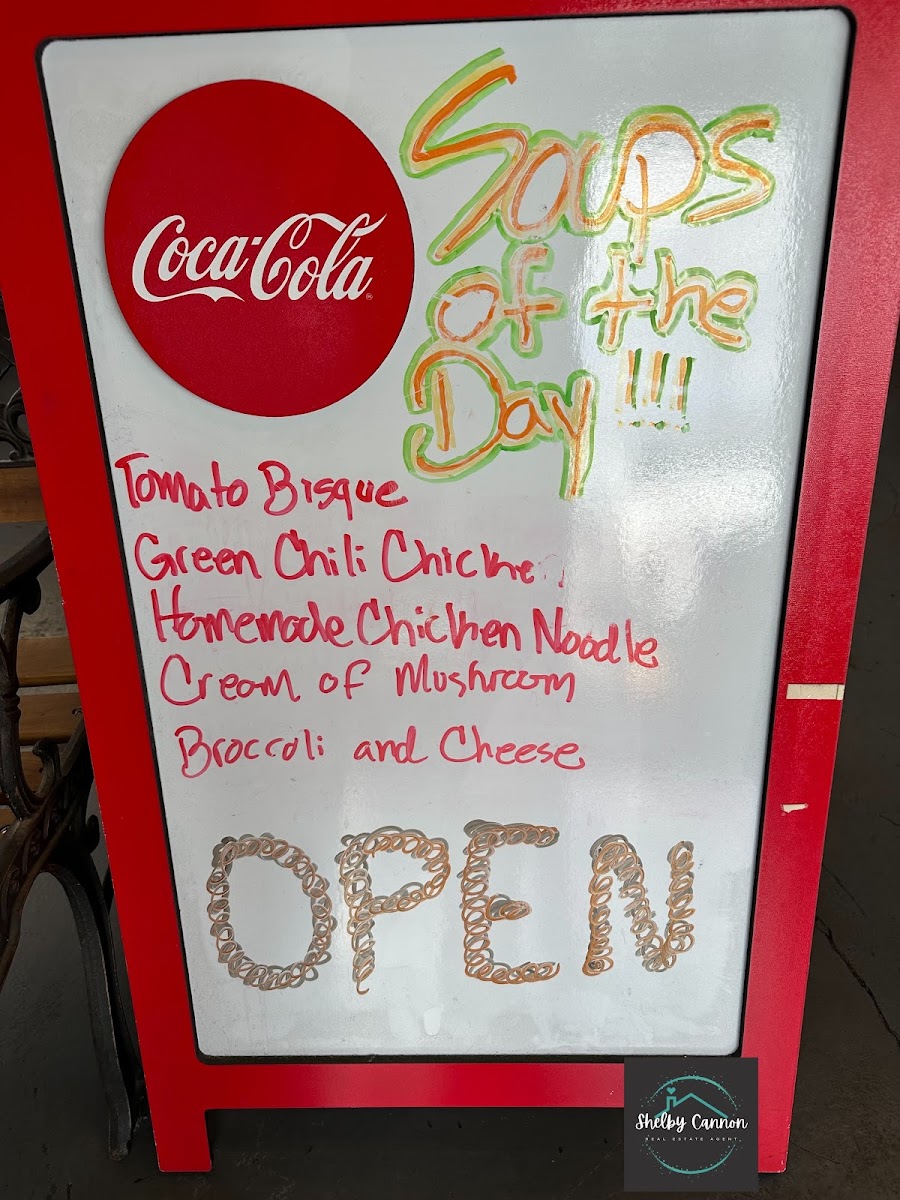 Coca-Cola
Soups
of the
Day !!!
Tomato Bisque
Green Chili Chicke
Homemade Chicken Noodle
Cream of Mushroom
Broccoli and Cheese
OPEN
Shelby Cannon
REAL ESTATE AGENT